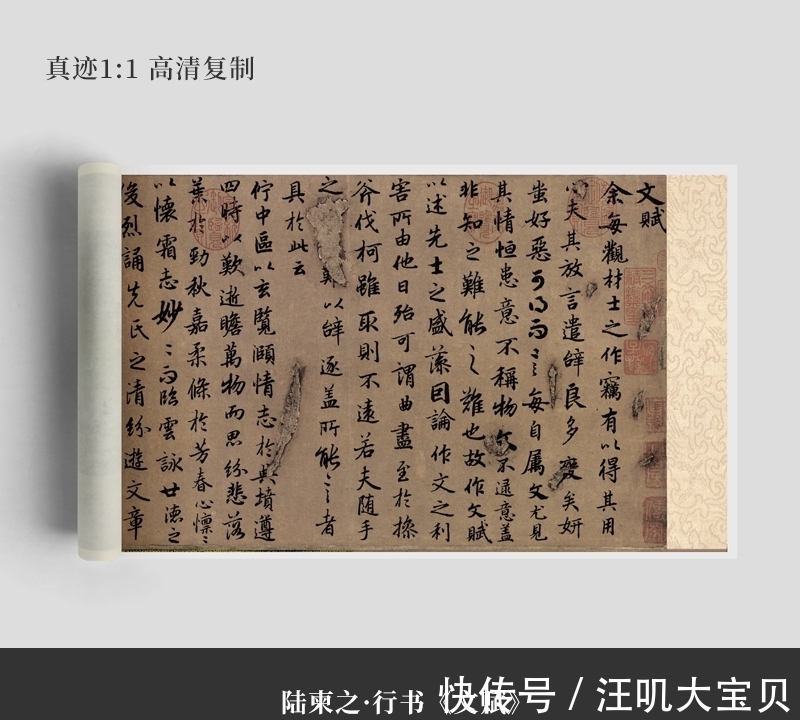 真迹1:1 高清复制
文賦
余每觀材士之作竊有以得其用
心夫其放言遣辝良多變矣妍
蚩好惡可得而言每自屬文尤見
其情恒患意不稱物文不逮意盖
非知之難能之難也故作文賦
以述先士之盛藻因論作文之利
害所由他日殆可謂曲盡至於操
斧伐柯雖取則不遠若夫随手
之難以辝逐盖所能言者
具於此云
佇中區以玄覽頤情志於典墳遵
四時以歎逝瞻萬物而思紛悲落
葉於勁秋嘉柔條於芳春心懍懍
以懷霜志妙妙而臨雲詠世德之
俊烈誦先民之清紛遊文章
陆柬之·行书《文赋》
快传号 / 汪叽大宝贝